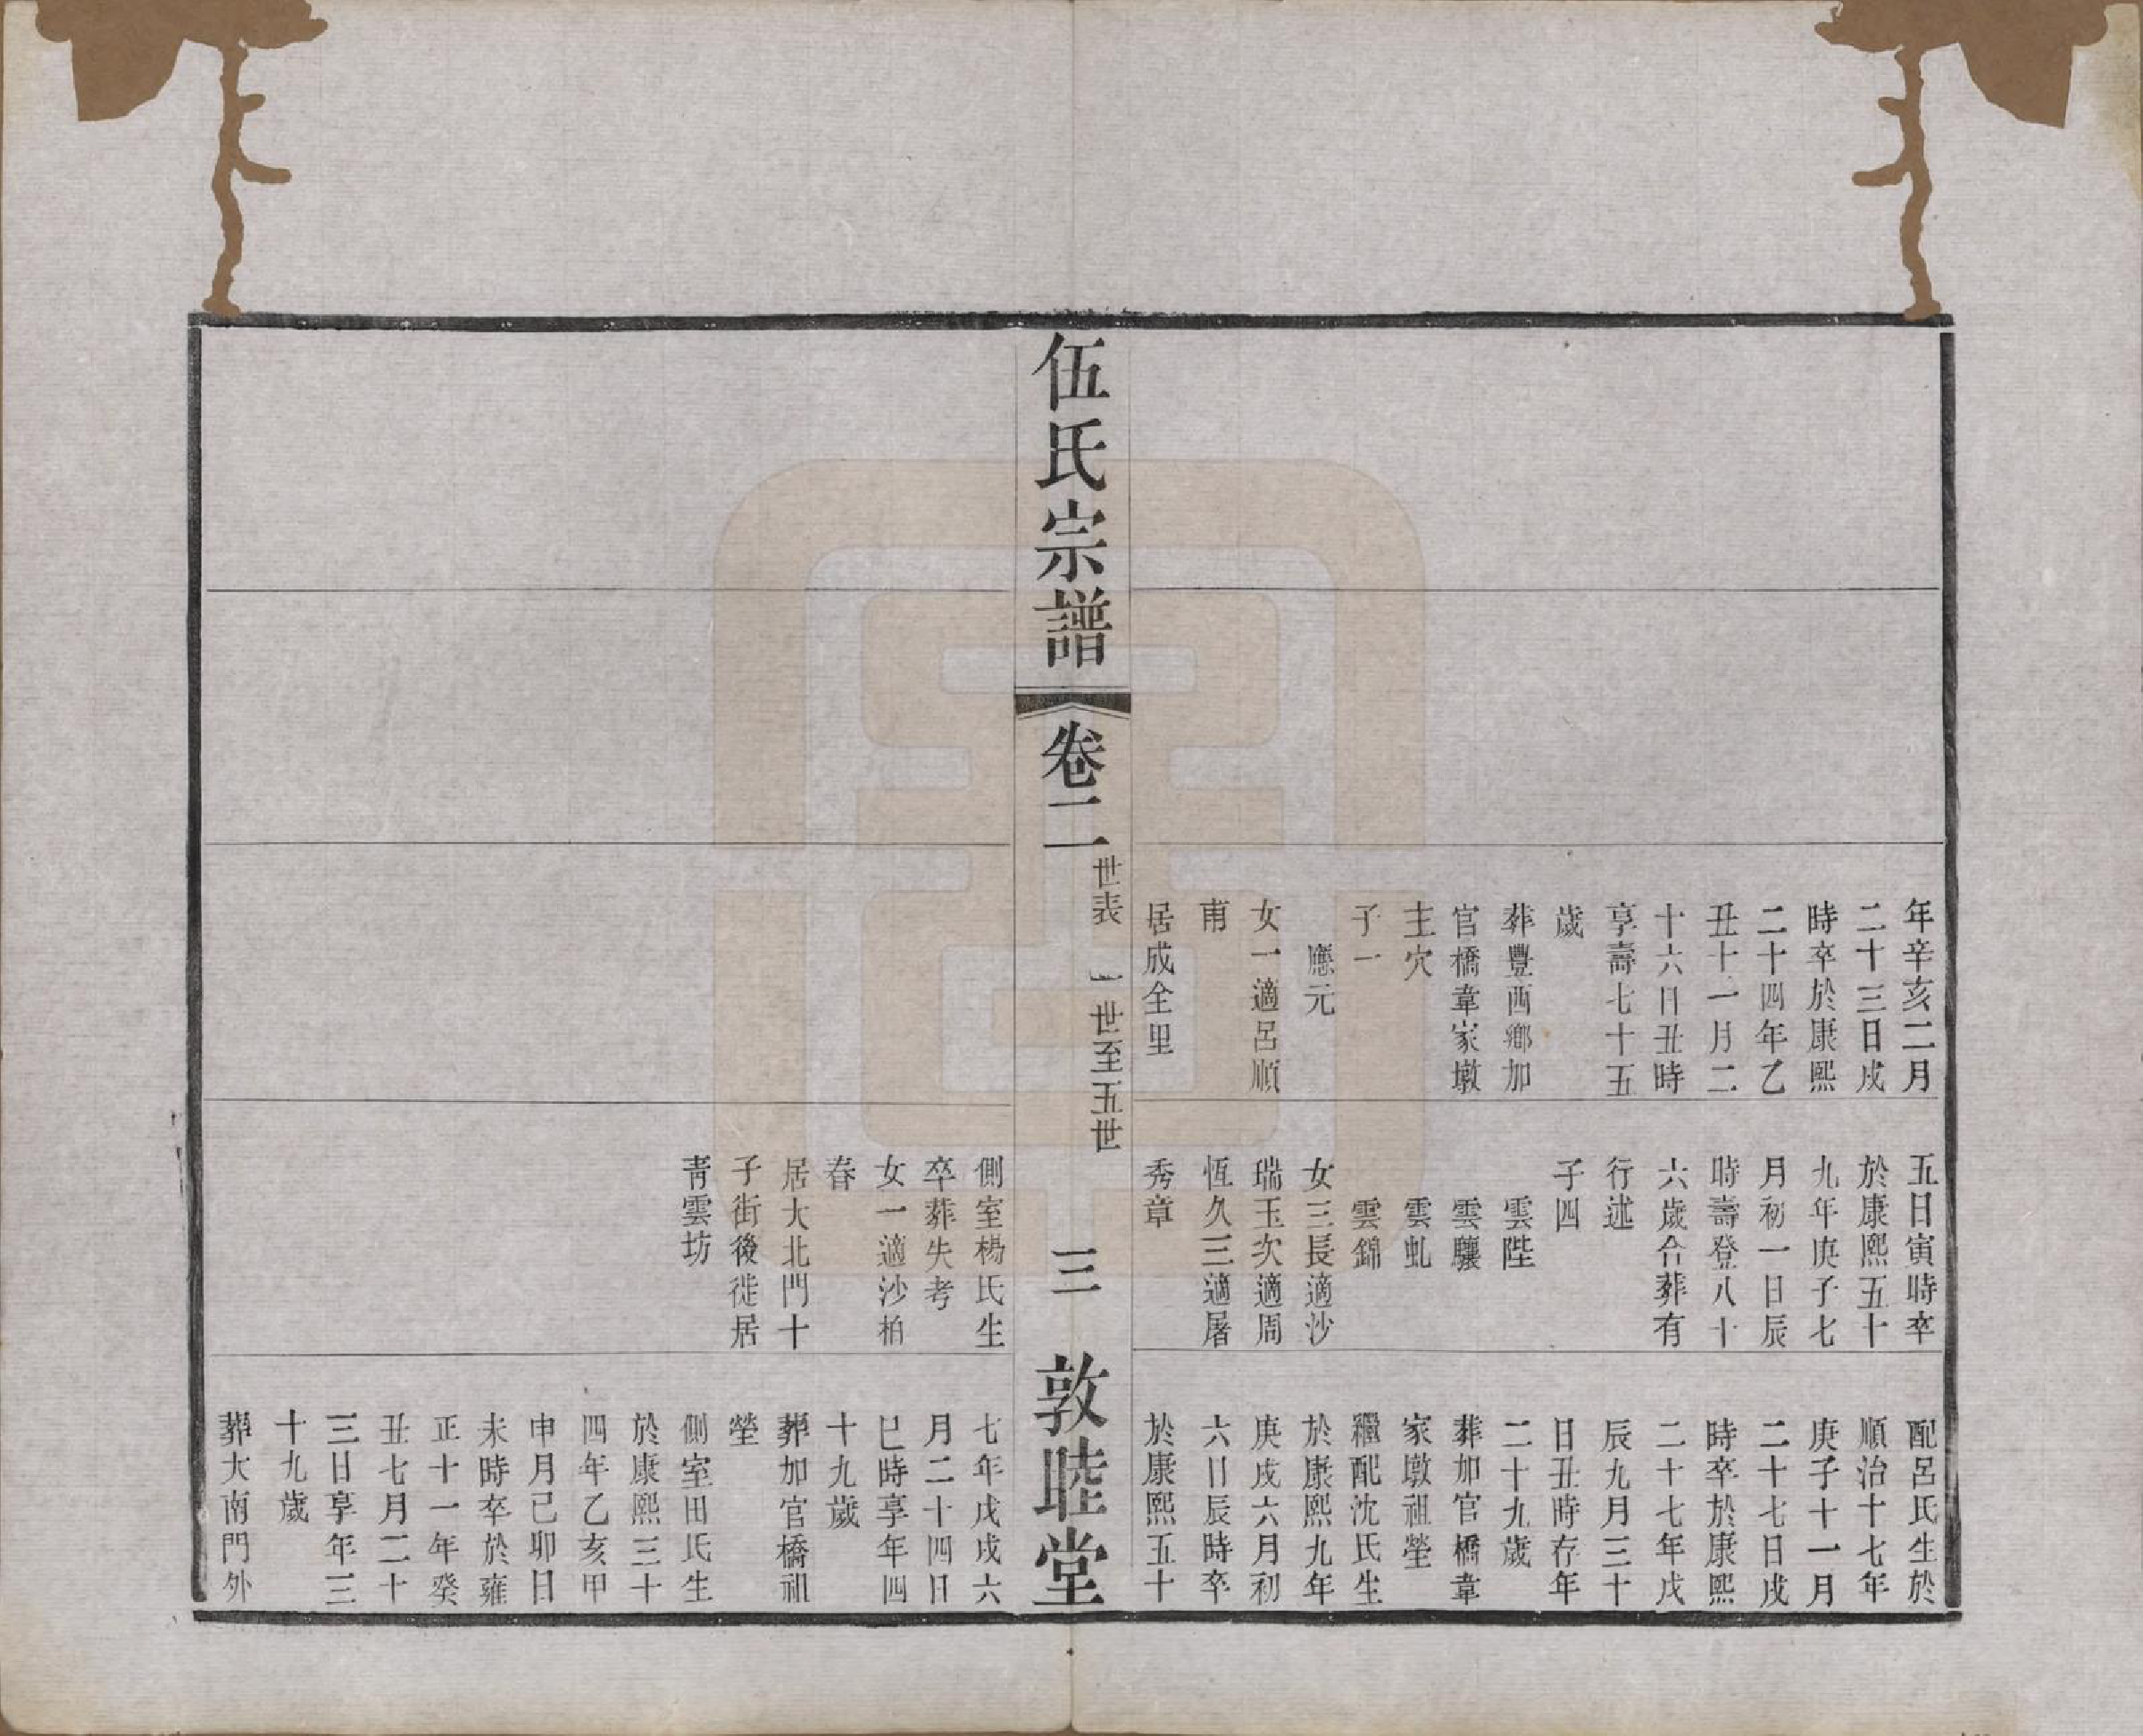 年辛亥二月
二十三日戌
時卒於康熙
二十四年乙
丑十一月二
十六日丑時
享壽七十五
歲
葬豐西鄉加
官橋韋家墩
主穴
子一
應元
女一適呂順
甫
居成全里
五日寅時卒
於康熙五十
九年庚子七
月初一日辰
時壽登八十
六歲合葬有
行述
子四
雲陛
雲驤
雲虬
雲錦
女三長適沙
瑞玉次適周
恆久三適屠
秀章
配呂氏生於
順治十七年
庚子十一月
二十七日戌
時卒於康熙
二十七年戊
辰九月三十
日丑時存年
二十九歲
葬加官橋韋
家墩祖塋
繼配沈氏生
於康熙九年
庚戌六月初
六日辰時卒
於康熙五十
伍氏宗譜
卷二
世表 一世至五世
三
敦睦堂
側室楊氏生
卒葬失考
女一適沙柏
春
居大北門十
子街後徙居
青雲坊
七年戊戌六
月二十四日
巳時享年四
十九歲
葬加官橋祖
塋
側室田氏生
於康熙三十
四年乙亥甲
申月己卯日
未時卒於雍
正十一年癸
丑七月二十
三日享年三
十九歲
葬大南門外